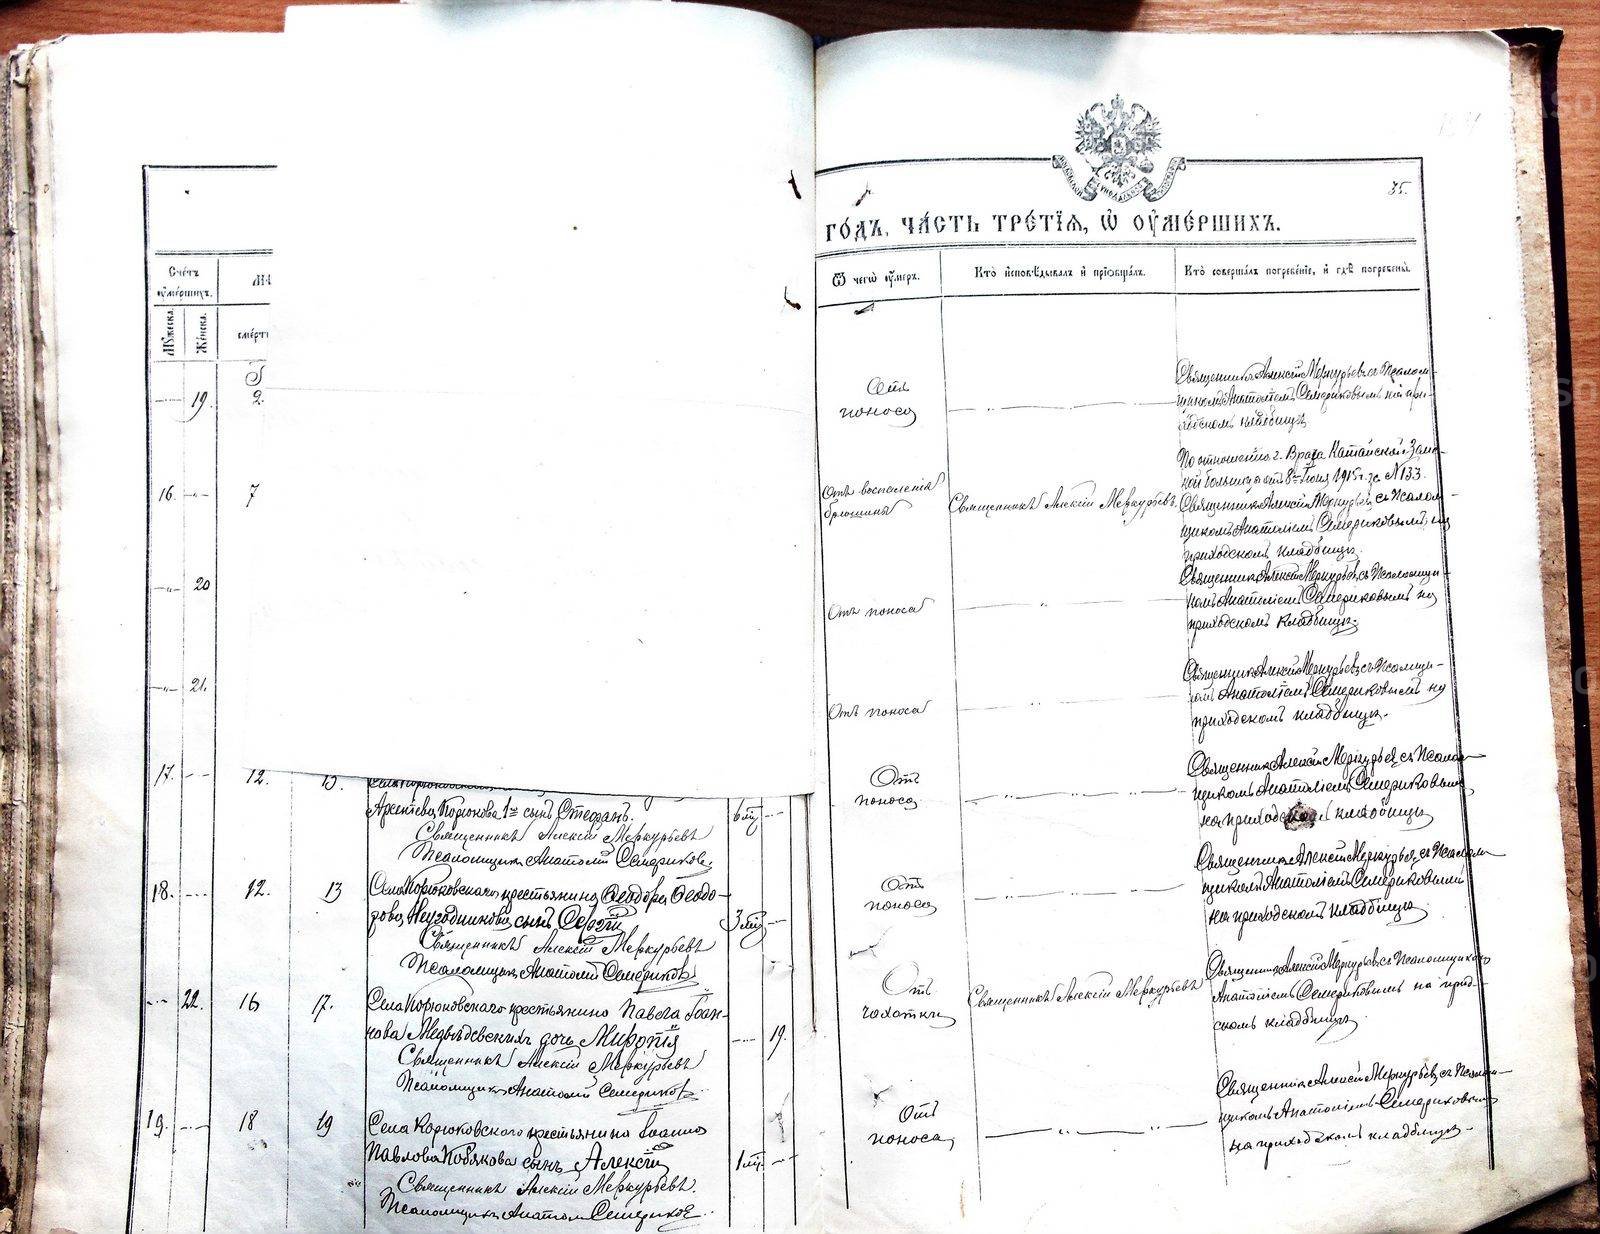 35.
ГО́ДЪ, ЧА́СТЬ ТРЕ́ТЇѦ, Ѡ҆ ОУ҆МЕ́РШИХЪ.
Сче́тъ
оу҆ме́ршихъ.
Мꙋ́жеска.
Же́нска.
сме́рти
Ѿ чегѡ̀ оу҆́меръ.
Кто̀ и҆сповѣ́дывалъ и҆ прїѻбща́лъ.
Кто̀ соверша́лъ погребе́нїе, и҆ гдѣ̀ погребены̀.
19.
2.
Отъ
поноса
Священникъ Алексій Меркурьевъ съ псалом-
щикомъ Анатоліемъ Семериковымъ на при-
ходскомъ кладбищѣ
16.
7
Отъ воспаленія
брюшины
Священникъ Алексій Меркурьевъ
По отношенію г. Врача Катайской Зем-
ской больницы отъ 8го Іюня 1915 г. за № 133.
Священникъ Алексій Меркурьевъ съ псалом-
щикомъ Анатоліемъ Семериковымъ на
приходскомъ кладбищѣ.
20
Отъ поноса
Священникъ Алексій Меркурьевъ съ псаломщи-
комъ Анатоліемъ Семериковымъ на
приходскомъ кладбищѣ.
21.
Отъ поноса
Священникъ Алексій Меркурьевъ съ псаломщи-
комъ Анатоліемъ Семериковымъ на
приходскомъ кладбищѣ.
17.
12.
13.
Арсеніева Корюкова 1е сынъ Стефанъ.
6 мц
Священникъ Алексій Меркурьевъ
Псаломщикъ Анатолій Семериковъ
Отъ
поноса
Священникъ Алексій Меркурьевъ съ псалом-
щикомъ Анатоліемъ Семериковымъ
на приходскомъ кладбищѣ
18.
12.
13
Села Корюковскаго крестьянина Ѳеодора Ѳеодо-
рова Неугодникова сынъ Сергій
3 мц
Священникъ Алексій Меркурьевъ
Псаломщикъ Анатолій Семериковъ
Отъ
поноса
Священникъ Алексій Меркурьевъ съ псалом-
щикомъ Анатоліемъ Семериковымъ
на приходскомъ кладбищѣ
22.
16
17.
Села Корюковскаго крестьянина Павла Іоан-
нова Медвѣдевскихъ дочь Миропія
19.
Священникъ Алексій Меркурьевъ
Псаломщикъ Анатолій Семериковъ
Отъ
чахотки
Священникъ Алексій Меркурьевъ
Священникъ Алексій Меркурьевъ съ псаломщикомъ
Анатоліемъ Семериковымъ на приход-
скомъ кладбищѣ
19.
18
19
Села Корюковскаго крестьянина Іоанна
Павлова Кобякова сынъ Алексій
1 мц.
Священникъ Алексій Меркурьевъ.
Псаломщикъ Анатолій Семериковъ.
Отъ
поноса
Священникъ Алексій Меркурьевъ съ псалом-
щикомъ Анатоліемъ Семериковымъ
на приходскомъ кладбищѣ.